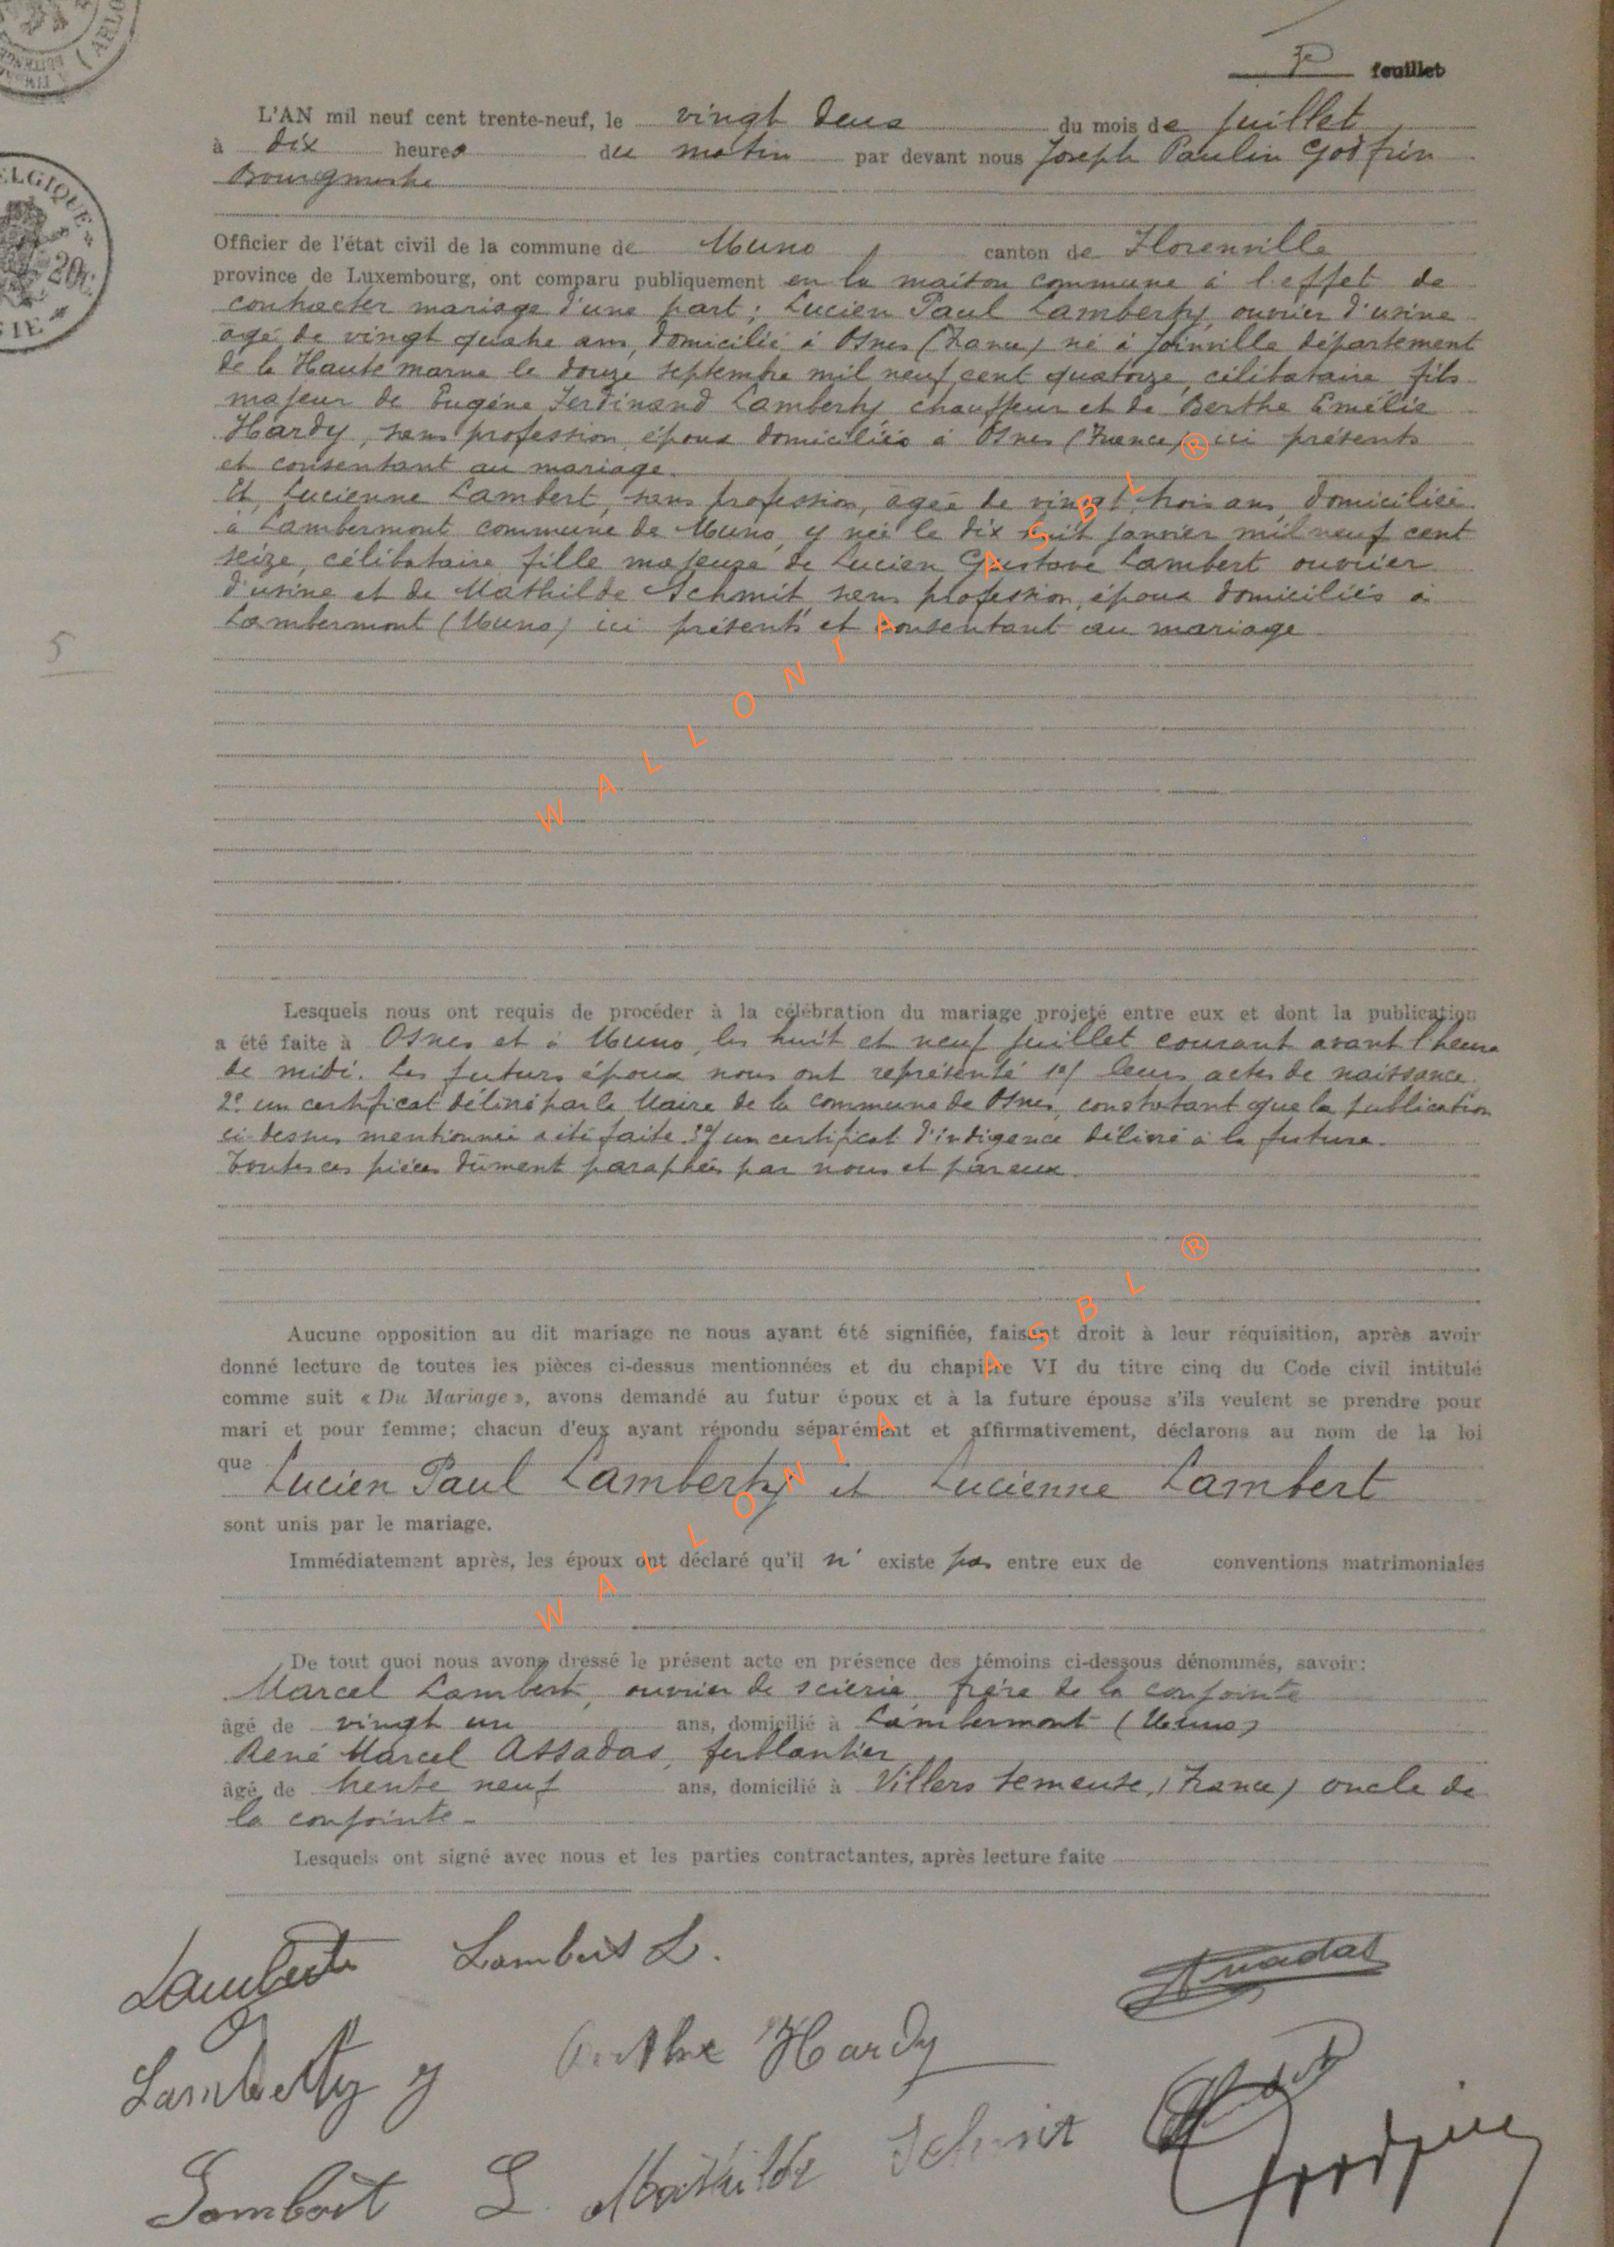 feuillet
L'AN mil neuf cent trente-neuf, le vingt deux du mois de juillet
à dix heures du matin par devant nous Joseph Paulin Godfrin
Bourgmestre
Officier de l'état civil de la commune de Muno canton de Florenville
province de Luxembourg, ont comparu publiquement en la maison commune à l'effet de
contracter mariage d'une part ; Lucien Paul Lamberty, ouvrier d'usine
âgé de vingt quatre ans, domicilié à Osnes (France) né à Joinville département
de la Haute marne le douze septembre mil neuf cent quatorze, célibataire fils
majeur de Eugéne Ferdinand Lamberty chauffeur et de Berthe Emélie
Hardy, sans profession époux domiciliés à Osnes (France) ici présents
et consentant au mariage.
Et, Lucienne Lambert, sans profession, âgée de vingt trois ans, domiciliée
à Lambermont commune de Muno, y née le dix huit janvier mil neuf cent
seize, célibataire fille majeure de Lucien Gustave Lambert ouvrier
d'usine et de Mathilde Schmit, sans profession, époux domiciliés à
Lambermont (Muno) ici présents et consentant au mariage
5
Lesquels nous ont requis de procéder à la célébration du mariage projeté entre eux et dont la publication
a été faite à Osnes et à Muno, les huit et neuf juillet courant avant l'heure
de midi. Les futurs époux nous ont représenté 1°/ leurs actes de naissance.
2° un certificat délivré par le Maire de la commune de Osnes, constatant que la publication
ci-dessus mentionnée a été faite 3°/ un certificat d'indigence délivré à la future.
Toutes ces pièces dûment paraphées par nous et par eux.
Aucune opposition au dit mariage ne nous ayant été signifiée, faisant droit à leur réquisition, après avoir
donné lecture de toutes les pièces ci-dessus mentionnées et du chapitre VI du titre cinq du Code civil intitulé
comme suit « Du Mariage », avons demandé au futur époux et à la future épouse s'ils veulent se prendre pour
mari et pour femme; chacun d'eux ayant répondu séparément et affirmativement, déclarons au nom de la loi
que Lucien Paul Lamberty et Lucienne Lambert
sont unis par le mariage.
Immédiatement après, les époux ont déclaré qu'il n' existe pas entre eux de conventions matrimoniales
De tout quoi nous avons dressé le présent acte en présence des témoins ci-dessous dénommés, savoir:
Marcel Lambert, ouvrier de scierie, frère de la conjointe
âgé de vingt un ans, domicilié à Lambermont (Muno)
René Marcel Assadas, ferblantier
âgé de trente neuf ans, domicilié à Villers Semeuse, (France) oncle de
la conjointe -
Lesquels ont signé avec nous et les parties contractantes, après lecture faite
Lamberty Lambert L. Assadas
Lamberty Berthe Hardy
Lambert L. Mathilde Schmit Godfrin
WALLONIA ASBL ®
WALLONIA ASBL ®